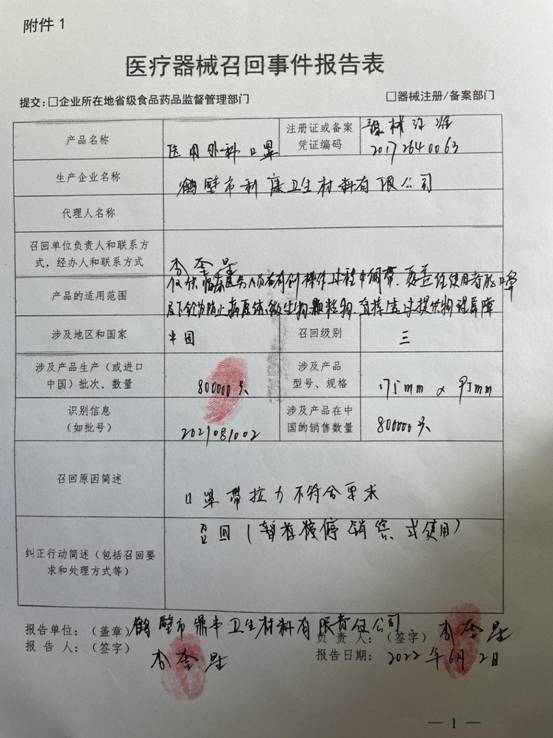 附件 1
医疗器械召回事件报告表
提交：□企业所在地省级食品药品监督管理部门 □器械注册/备案部门
产品名称 医用外科口罩 注册证或备案凭证编码 豫械注准20172640063
生产企业名称 鹤壁市 卫生材料有限公司
代理人名称
召回单位负责人和联系方式，经办人和联系方式 李奎星
产品的适用范围 仅供临床医务人员在有创操作过程中佩带，覆盖住使用者的口鼻
及下颌为防止病原体微生物颗粒物直接透过提供物理屏障
涉及地区和国家 中国 召回级别 三
涉及产品生产（或进口中国）批次、数量 800000只 涉及产品型号、规格 175mm x 95mm
识别信息（如批号） 2021081002 涉及产品在中国的销售数量 800000只
召回原因简述 口罩带拉力不符合要求
纠正行动简述（包括召回要求和处理方式等） 召回（暂停销售、或使用）
报告单位：（盖章）鹤壁市 卫生材料有限责任公司 负责人：（签字）李奎星
报告人：（签字）李奎星 报告日期：2022年6月2日
— 1 —